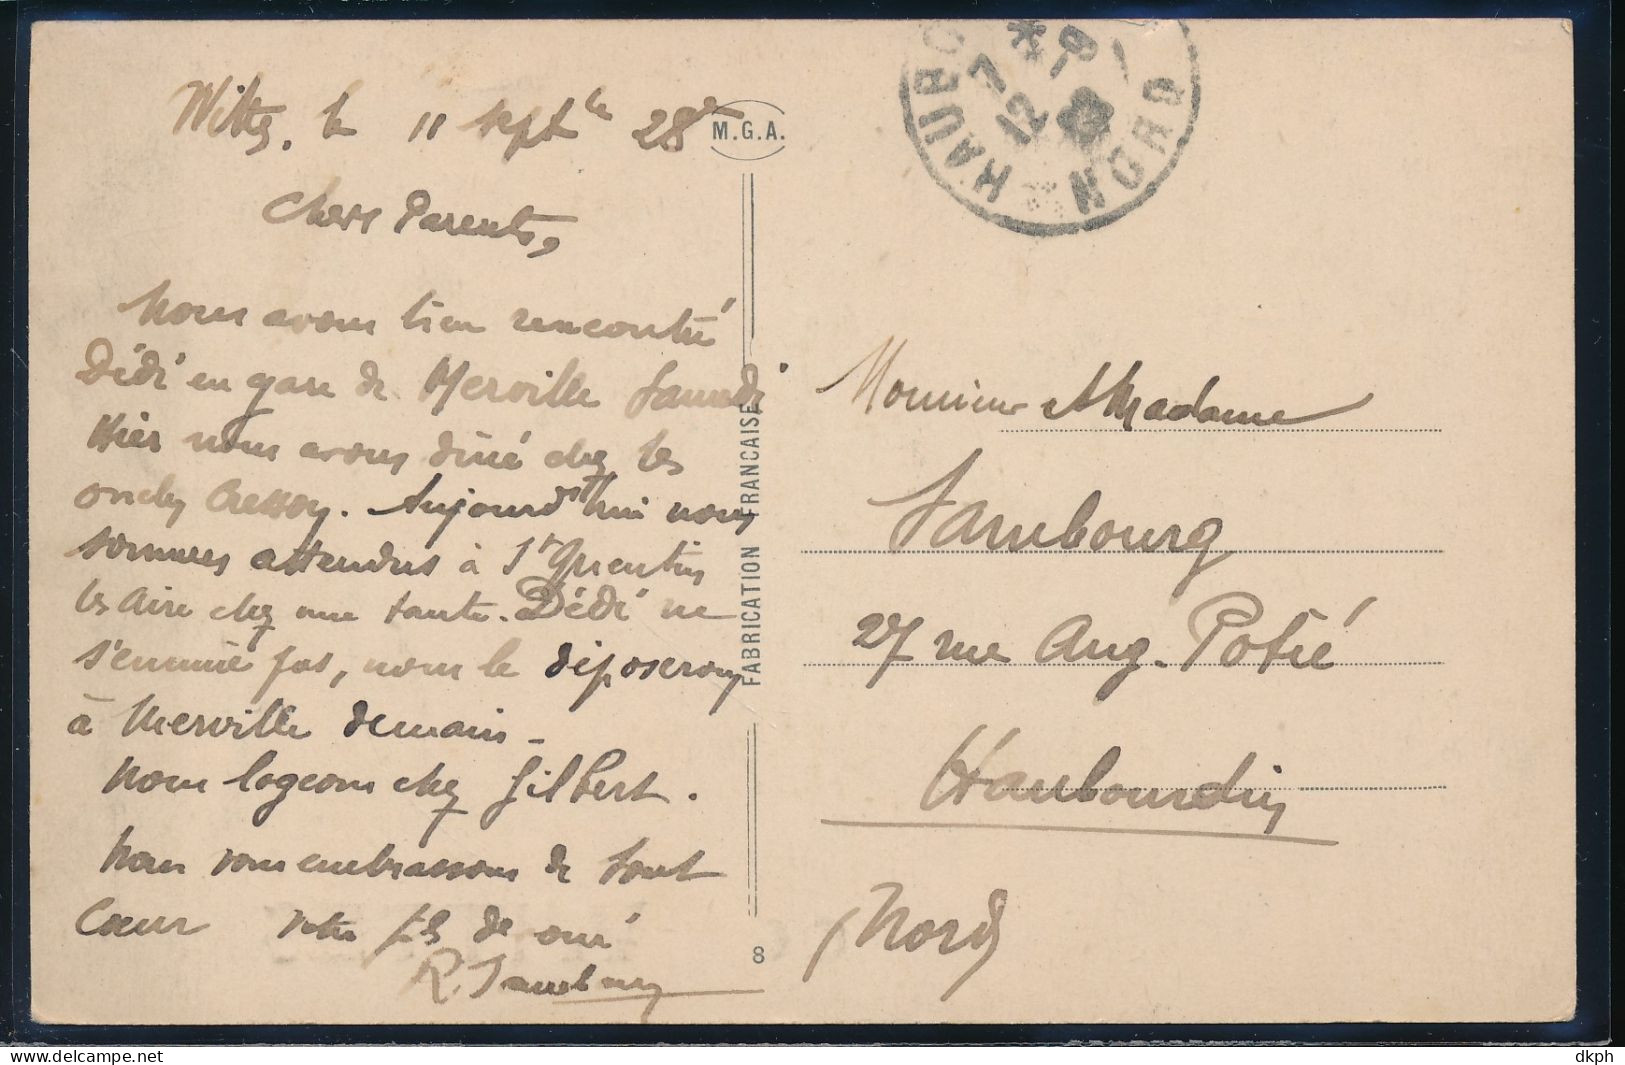 Wittes, le 11 septbre 28
M.G.A.
Chers Parents,
Nous avons bien rencontré
Dédé en gare de Merville Samedi
Hier nous avons diné chez les
oncles Cressoy. Aujourd'hui nous
sommes attendus à St Quentin
les Aire chez une tante. Dédé ne
s'ennuie pas, nous le déposerons
à Merville demain -
Nous logeons chez Gilbert.
Nous vous embrassons de tout
Cœur votre fils
R. Sambourg
FABRICATION FRANCAISE
8
HAUBO
NORD
7 * 8
12
Monsieur et Madame
Sambourg
27 rue Aug. Potié
Haubourdin
(Nord)
dkph